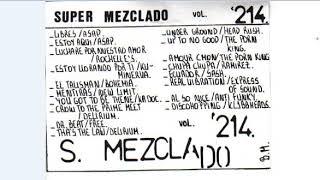 SUPER MEZCLADO VOL. '214.
-LIBRES/ASAP.
-ESTOY AQUI/ASAP.
-LUCHARE POR NUESTRO AMOR
/ROCHELLE'S.
-ESTOY LLORANDO POR TI/KU-
MINERVA.
-EL TALISMAN/BOHEMIA.
-MENTIRAS/NEW LIMIT.
-YOU GOT TO BE THEME/KADOC.
-CROW TO THE PRIME MEET
/DELIRIUM.
-DR. BEAT/FREE.
-THAT'S THE LAW/DELIRIUM.
-UNDER GROUND/HEAD RUSH.
-UP TO NO GOOD/THE PORN
KING.
-AMOUR CMON/THE PORN KING
-CHUPA CHUPA/RAMIREZ.
-ECUADOR/SASH.
-REAL VIBRATION/EXPRESS
OF SOUND.
-AL SO NICE/ANTI FUNKY
-DISCOHOPPING/KLUBBHEADS.
VOL. '214.
S. MEZCLADO
B.M.